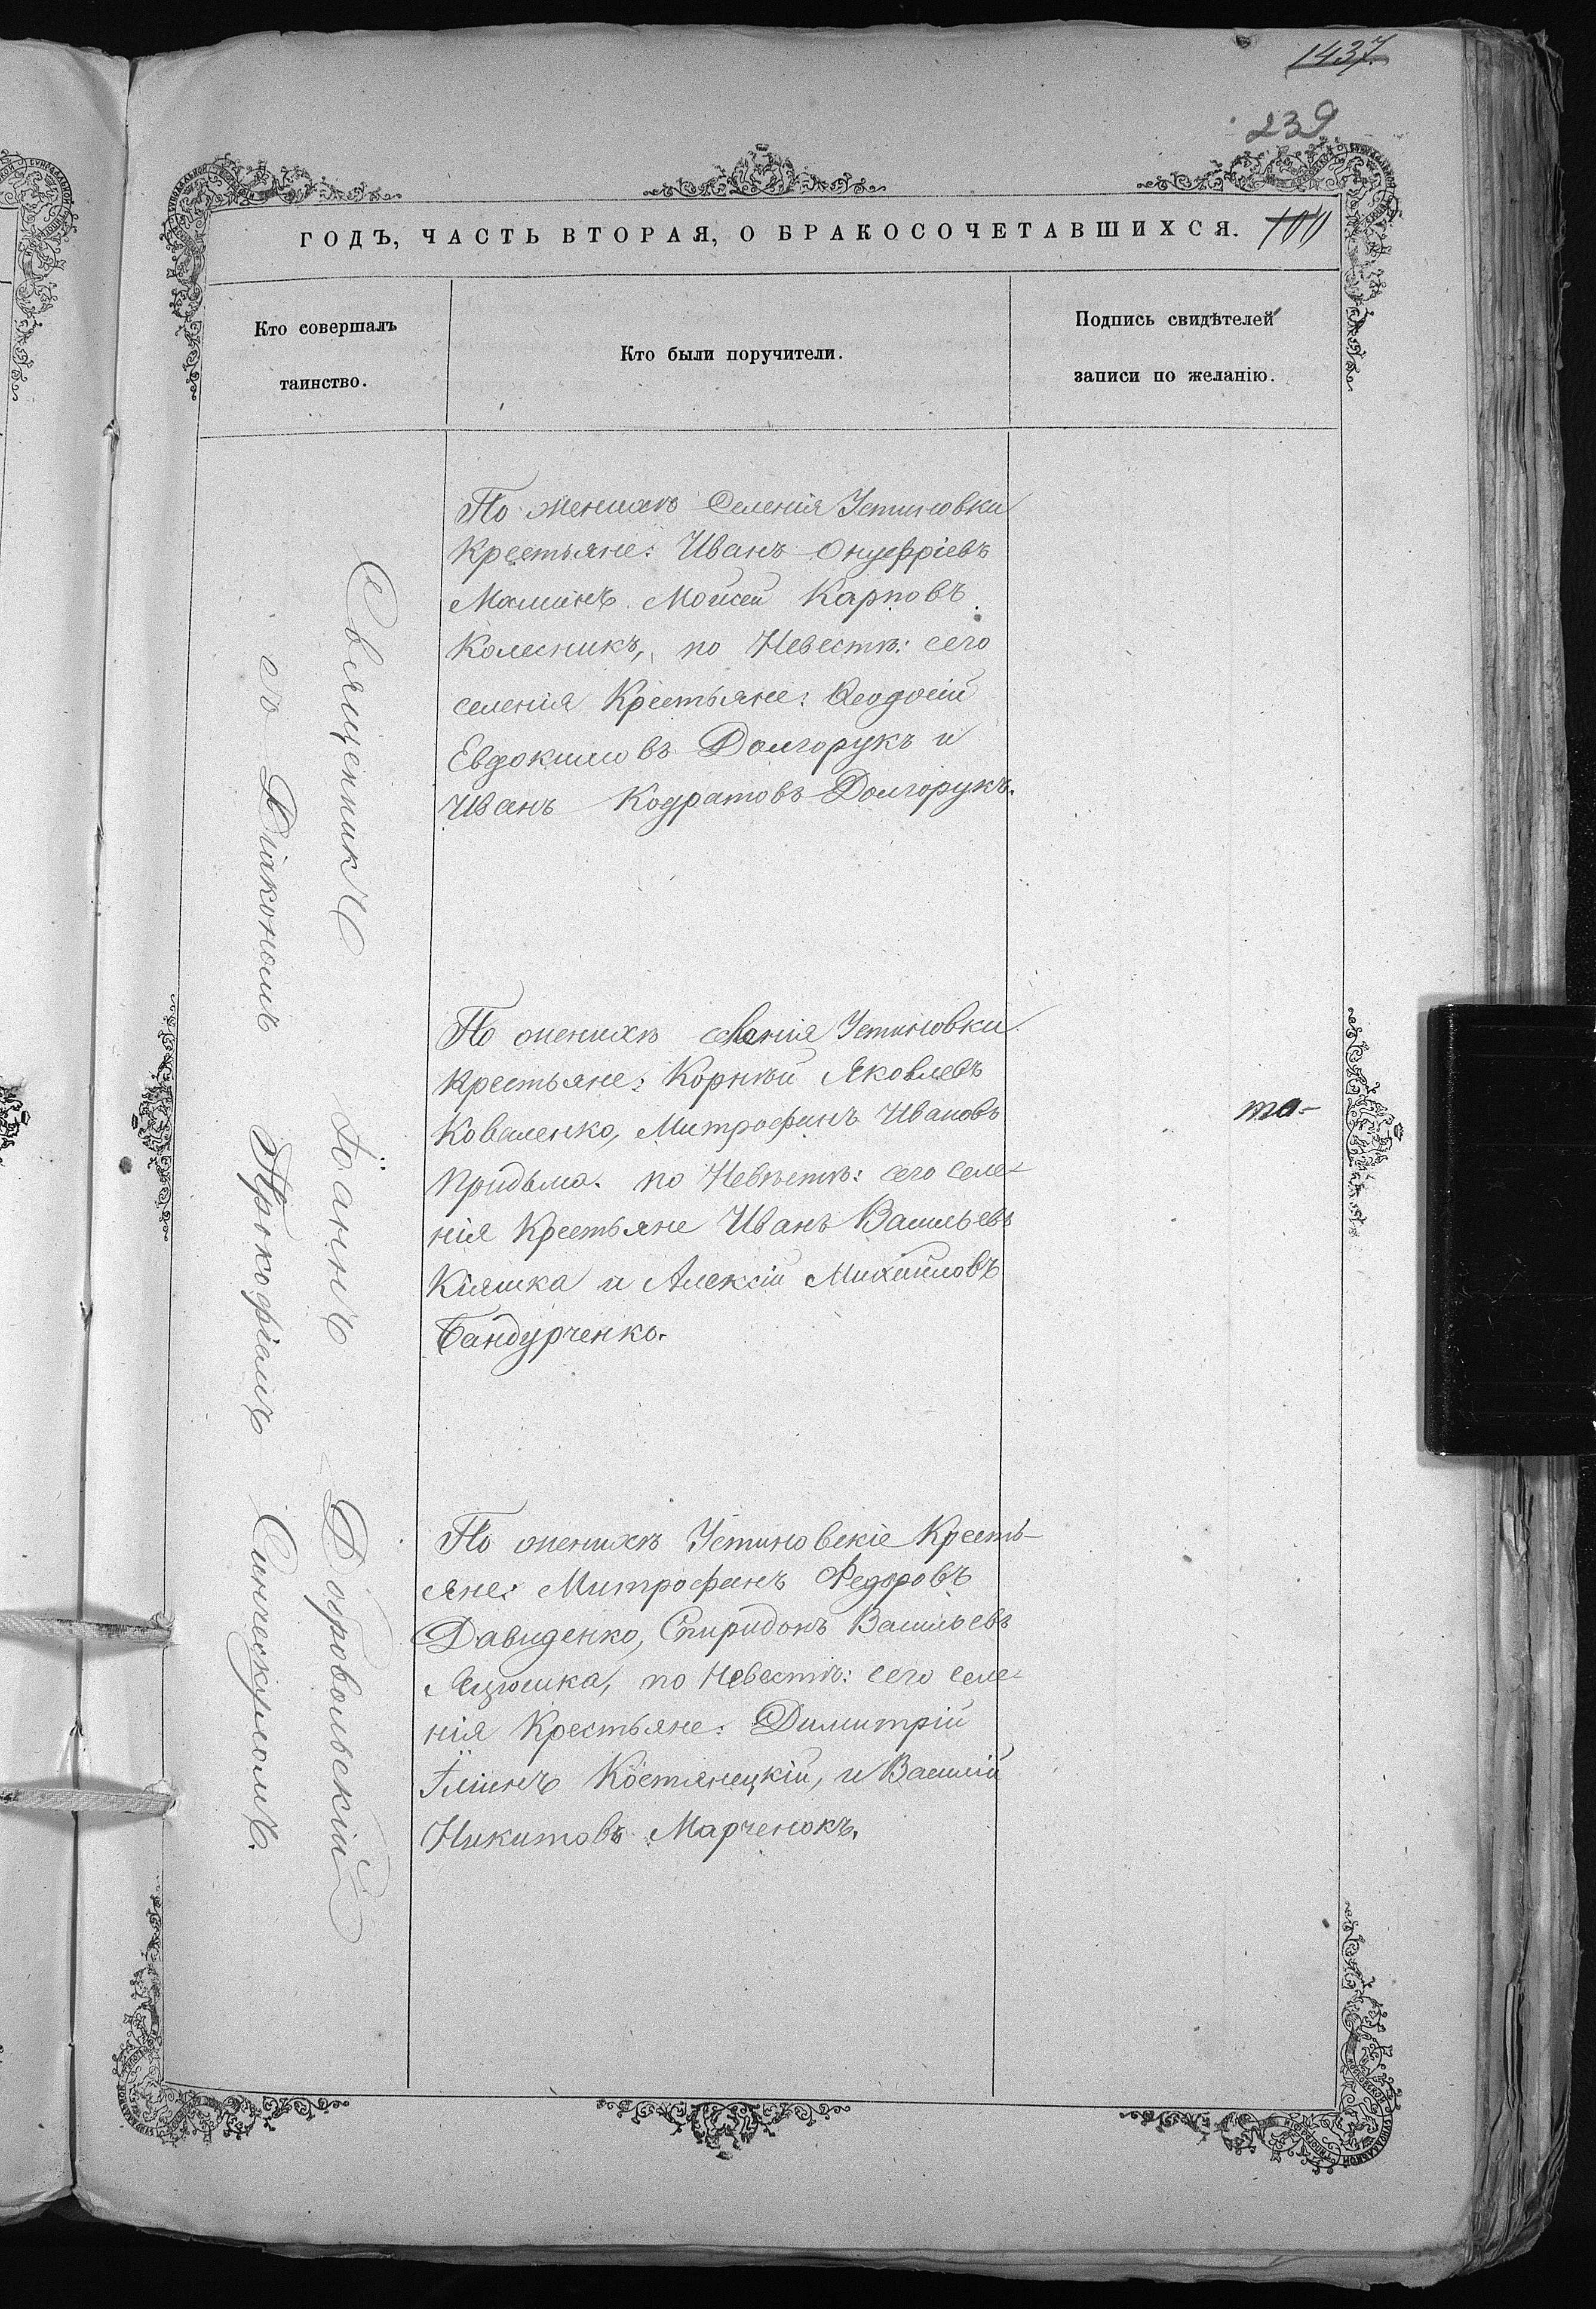 1437
239
ГОДЪ, ЧАСТЬ ВТОРАЯ, О БРАКОСОЧЕТАВШИХСЯ. 100
Кто совершалъ
таинство.
Кто были поручители.
Подпись свидѣтелей
записи по желанію.
Священникъ Іоаннъ Добровольскій
съ Діакономъ Прокофіемъ
По женихѣ Селенія Устиновки
Крестьяне: Иванъ Онуфріевъ
Моисей Карповъ
Колесникъ, по Невестѣ: сего
селенія Крестьяне: Ѳеодосій
Евдокимовъ Долгорукъ и
Иванъ Кодратовъ Долгорукъ.
По женихѣ селенія Устиновки
Крестьяне: Корнѣй Яковлевъ
Коваленко, Митрофанъ Ивановъ
Придьма. по Невѣстѣ: сего селе-
нія Крестьяне Иванъ Васильевъ
Кіяшка и Алексій Михайловъ
Бандурченко.
та-
По женихѣ Устиновскіе Кресть-
яне: Митрофанъ Федоровъ
Давиденко, Спиридонъ Васильевъ
по Невестѣ: сего селе-
нія Крестьяне: Димитрій
Ілiинъ Костянецкій, и Василій
Никитовъ Марченокъ.